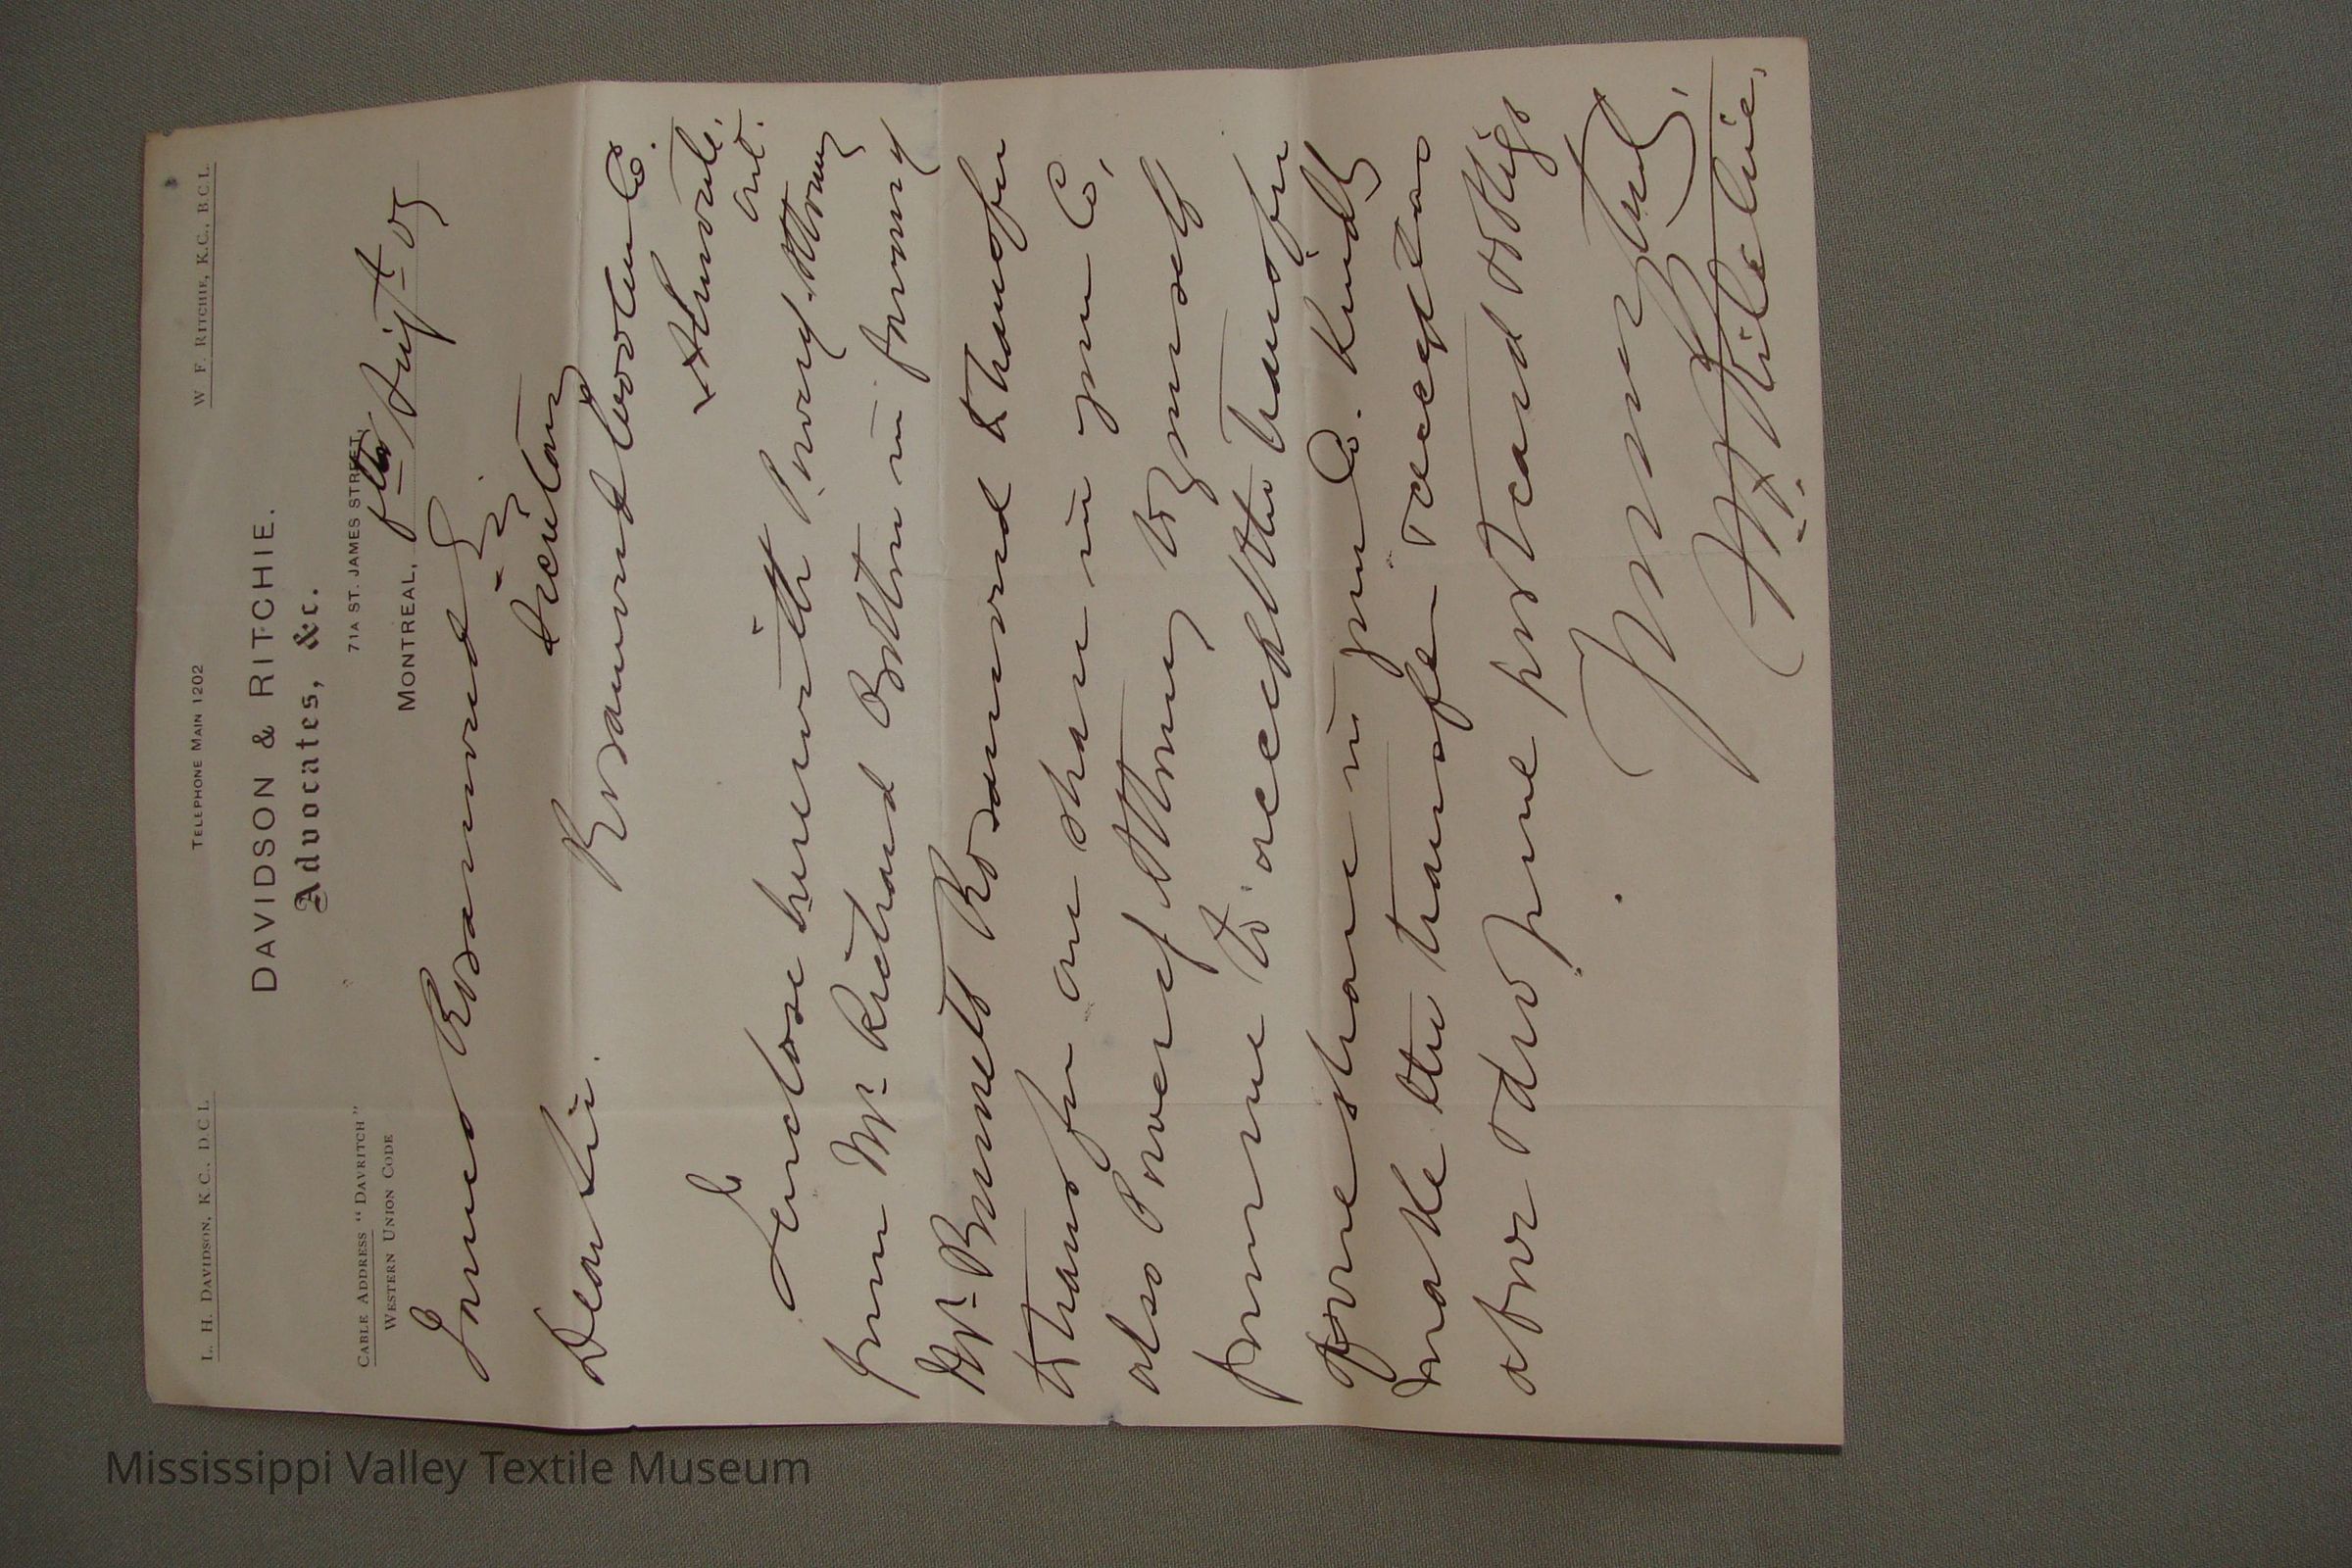 L. H. DAVIDSON, K.C., D.C.L. TELEPHONE MAIN 1202 W. F. RITCHIE, K.C., B.C.L.
DAVIDSON & RITCHIE.
Advocates, &c.
71A ST. JAMES STREET,
CABLE ADDRESS "DAVRITCH"
WESTERN UNION CODE
MONTREAL, 8th Sept 05
James Rosamond Esq.
Secretary
Dear Sir. Rosamond Woolen Co.
Almonte,
Ont.
I enclose herewith Power of Attorney
from Mr. Richard Bottom in favour of
Mr. Bennett Rosamond to transfer
to transfer one share in your Co,
also Power of Attorney by myself
for me to accept the transfer
of one share in your Co. Kindly
make the transfer & accept as
above & drop me post card & oblige
Yours truly,
W. F. Ritchie,
Mississippi Valley Textile Museum